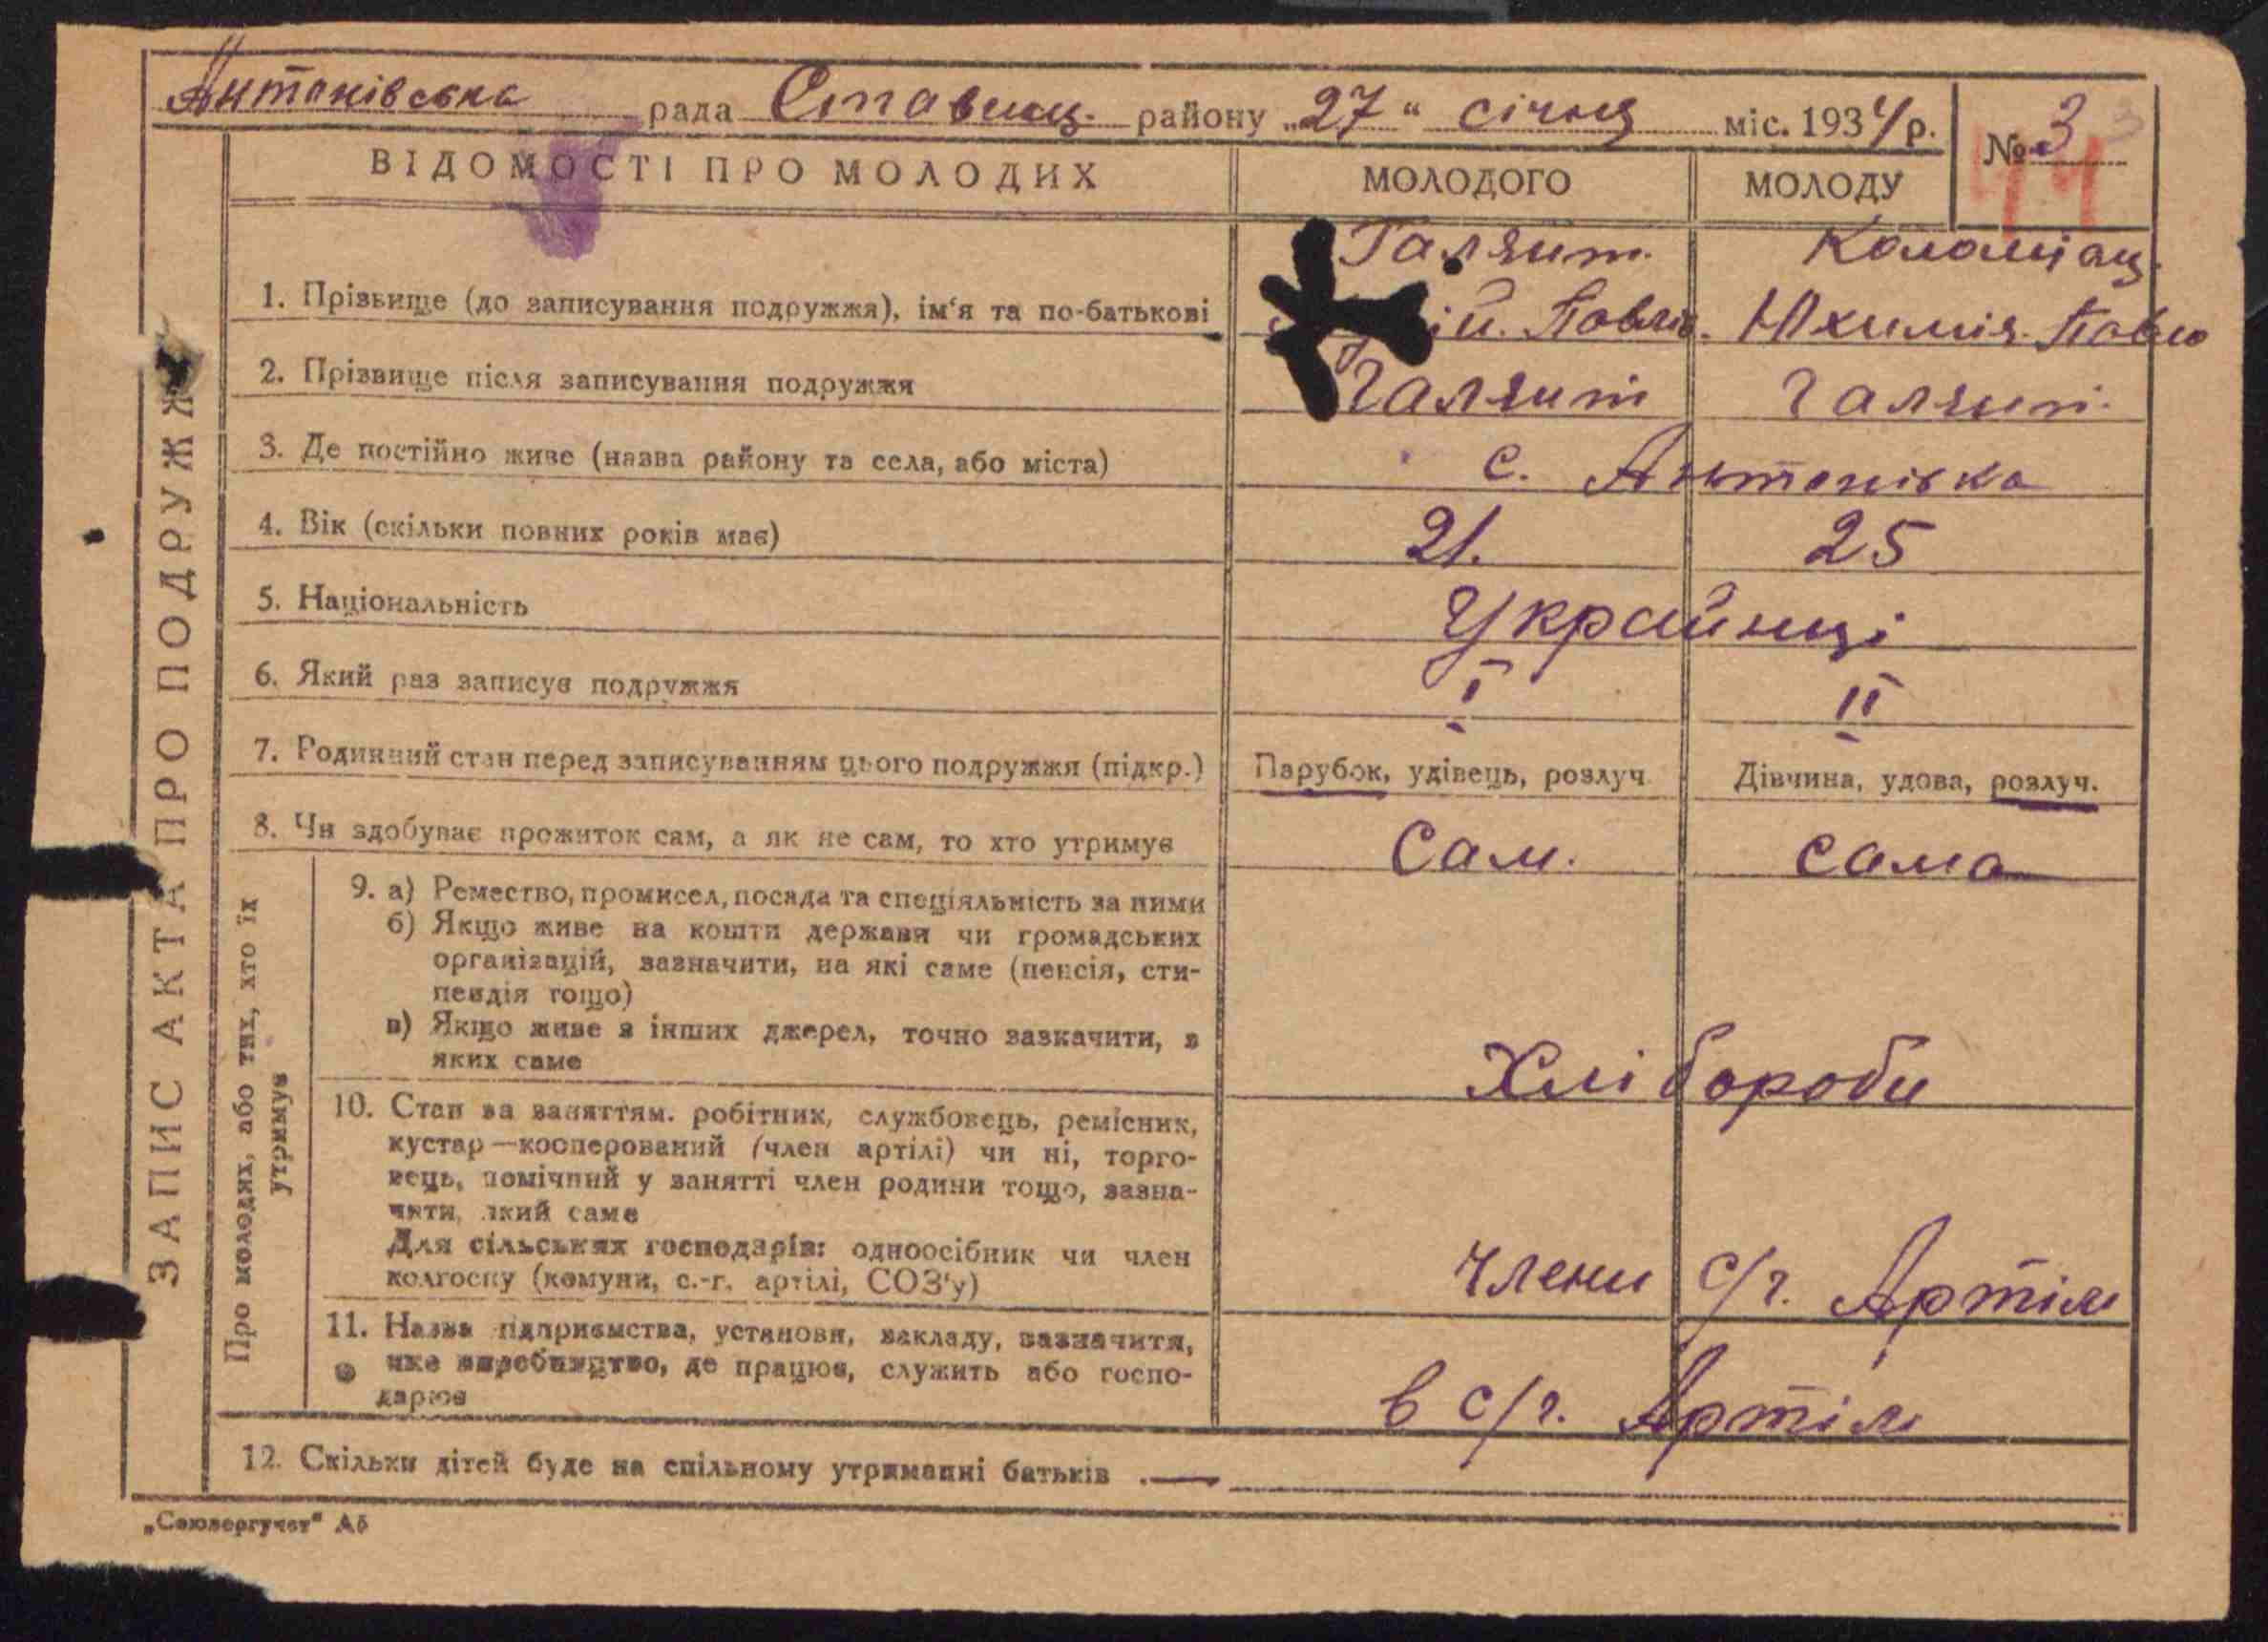 Антонівська рада Ставищ. району „27“ січня міс. 1934 р.
№ 3
44
ВІДОМОСТІ ПРО МОЛОДИХ
МОЛОДОГО
МОЛОДУ
ЗАПИС АКТА ПРО ПОДРУЖЖЯ
1. Прізвище (до записування подружжя), ім‘я та по-батькові
Галяит.
Павло.
Коломіац.
Юхимія. Павло
2. Прізвище після записування подружжя
Галяит
Галяит.
3. Де постійно живе (назва району та села, або міста)
с. Антонівка
4. Вік (скільки повних років має)
21.
25
5. Національність
Українці
6. Який раз записує подружжя
I
II
7. Родинний стан перед записуванням цього подружжя (підкр.)
Парубок, удівець, розлуч
Дівчина, удова, розлуч.
8. Чи здобуває прожиток сам, а як не сам, то хто утримує
Сам.
Сама
Про молодих, або тих, хто їх
утримує
9. а) Ремество, промисел, посада та спеціяльність за ними
б) Якщо живе на кошти держави чи громадських
організацій, зазначити, на які саме (пенсія, сти-
пендія тощо)
в) Якщо живе з інших джерел, точно зазначити, з
яких саме
Хлібороби
10. Стан за заняттям. робітник, службовець, ремісник,
кустар—кооперований (член артілі) чи ні, торго-
вець, помічний у занятті член родини тощо, зазна-
чити, який саме
Для сільських господарів: одноосібник чи член
колгоспу (комуни, с.-г. артілі, СОЗ‘у)
Члени с/г. Артіли
11. Назва підприємства, установи, закладу, зазначити,
яке виробництво, де працює, служить або госпо-
дарює
в с/г. Артіли
12. Скільки дітей буде на спільному утриманні батьків . —
„Союзоргучет“ Аб